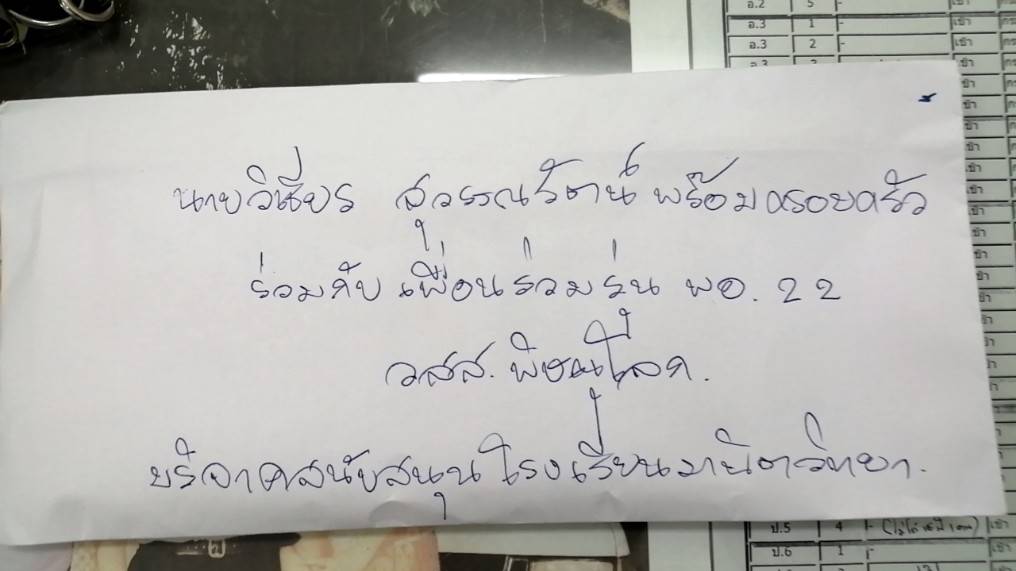 อ.2 5 - เช้า
อ.3 1 - เช้า
อ.3 2 - เช้า
นายวิเชียร สุวรรณรัตน์ พร้อมครอบครัว
ร่วมกับ เพื่อนร่วมรุ่น พอ. 22
วสส. พิษณุโลก.
บริจาคสนับสนุนโรงเรียนมานิตวิทยา.
ป.5 4 เช้า
ป.6 1 - เช้า